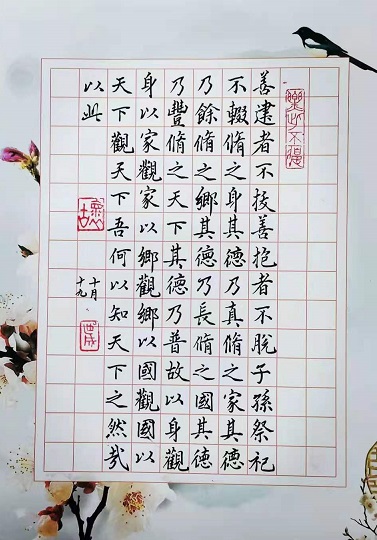 善建者不拔善抱者不脫子孫祭祀
不輟脩之身其德乃真脩之家其德
乃餘脩之鄉其德乃長脩之國其德
乃豐脩之天下其德乃普故以身觀
身以家觀家以鄉觀鄉以國觀國以
天下觀天下吾何以知天下之然哉
以此
十月
十九